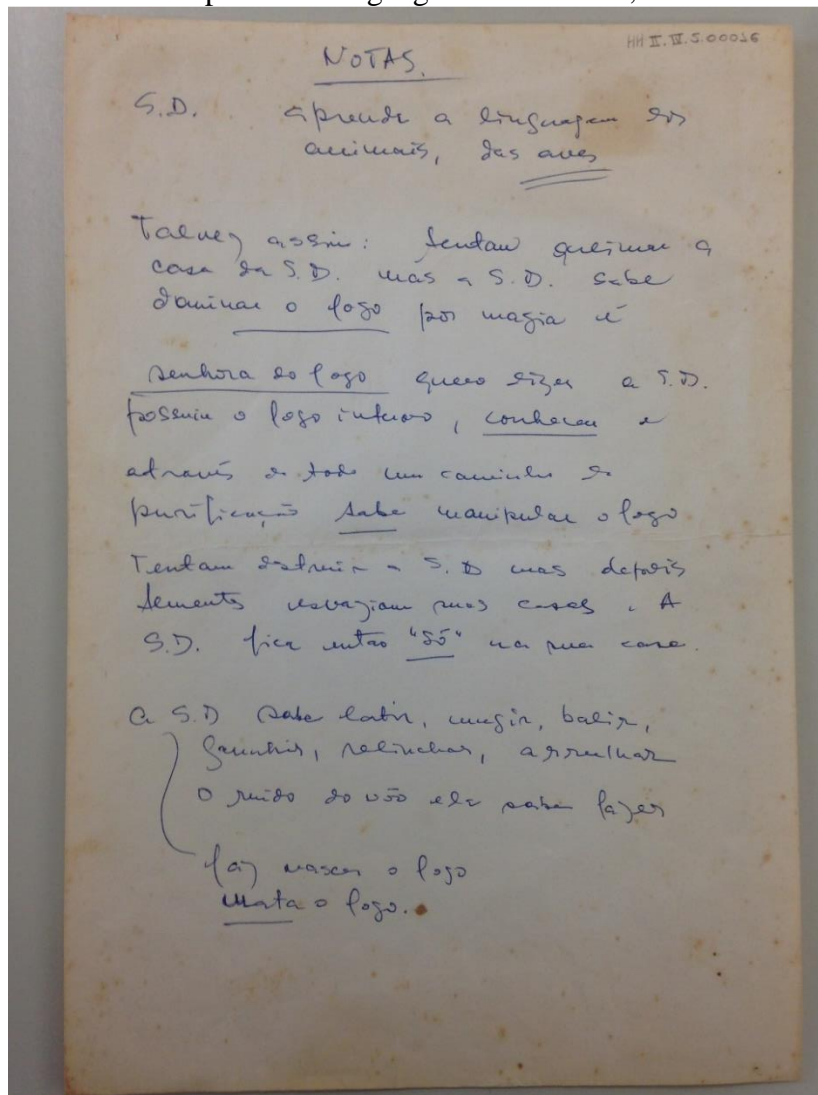 HH II.IV.5.00016
NOTAS.
S.D. aprende a linguagem dos
animais, das aves
Talvez assim: tentam queimar a
casa da S.D. mas a S.D. sabe
dominar o fogo por magia é
senhora do fogo quero dizer a S.D.
possuiu o fogo interno, conheceu e
através de todo um caminho de
purificação sabe manipular o fogo
Tentam destruir a S.D mas depois
sementes esvaziam suas casas. A
S.D. fica então "só" na sua casa.
a S.D sabe latir, mugir, balir,
ganhir, relinchar, arrulhar
O ruído do vôo ela sabe fazer
faz nascer o fogo
Mata o fogo.